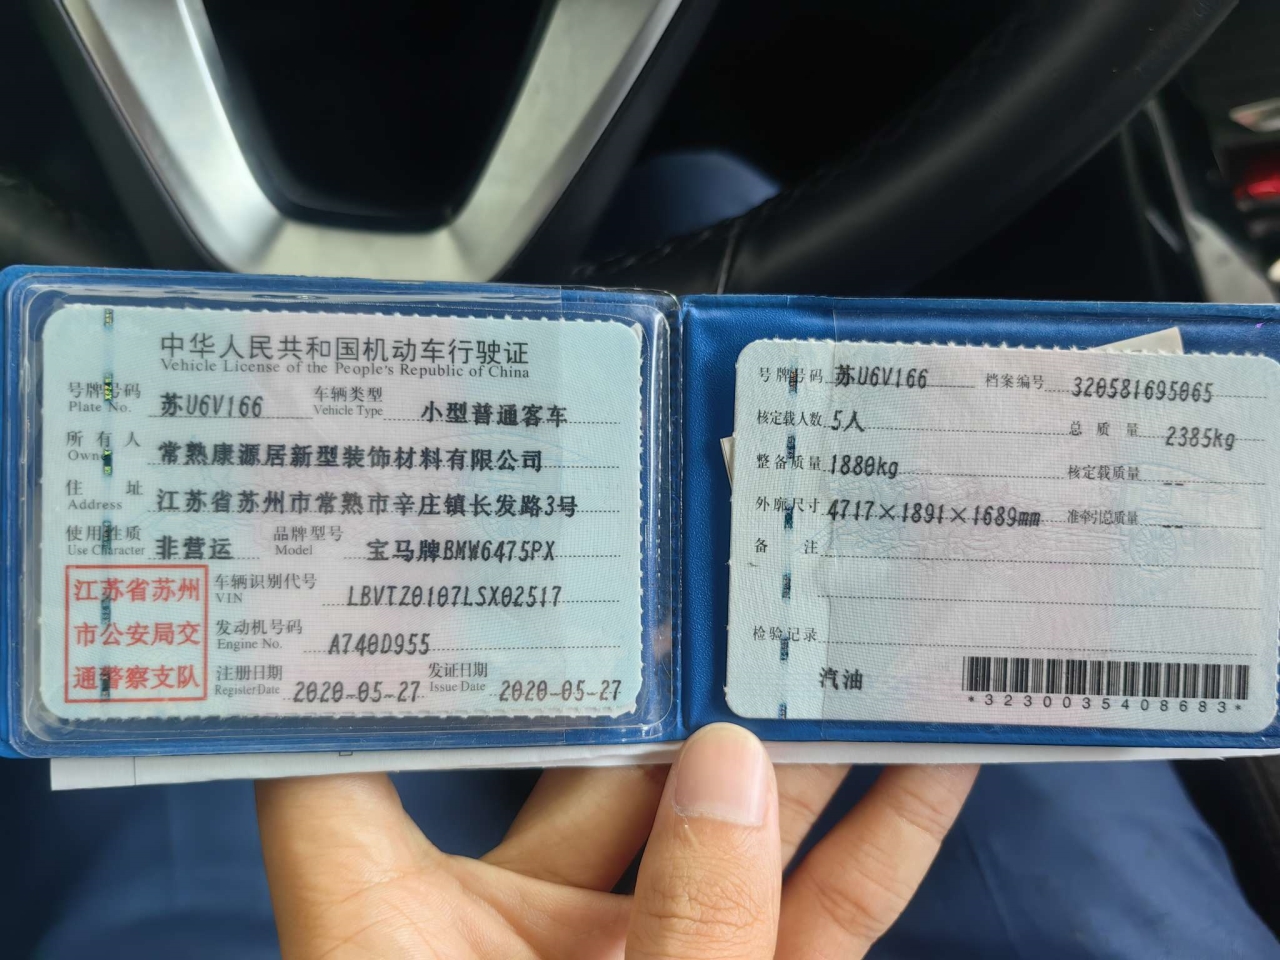 中华人民共和国机动车行驶证
Vehicle License of the People's Republic of China
号牌号码 苏U6V166 车辆类型 小型普通客车
Plate No. Vehicle Type
所有人 常熟康源居新型装饰材料有限公司
Owner
住址 江苏省苏州市常熟市辛庄镇长发路3号
Address
使用性质 非营运 品牌型号 宝马牌BMW6475PX
Use Character Model
江苏省苏州
市公安局交
通警察支队
车辆识别代号 LBVTZ0107LSX02517
VIN
发动机号码 A740D955
Engine No.
注册日期 2020-05-27 发证日期 2020-05-27
Register Date Issue Date
号牌号码 苏U6V166 档案编号 320581695065
核定载人数 5人 总质量 2385kg
整备质量 1880kg 核定载质量 --
外廓尺寸 4717×1891×1689mm 准牵引总质量 --
备注
检验记录
汽油
*3230035408683*